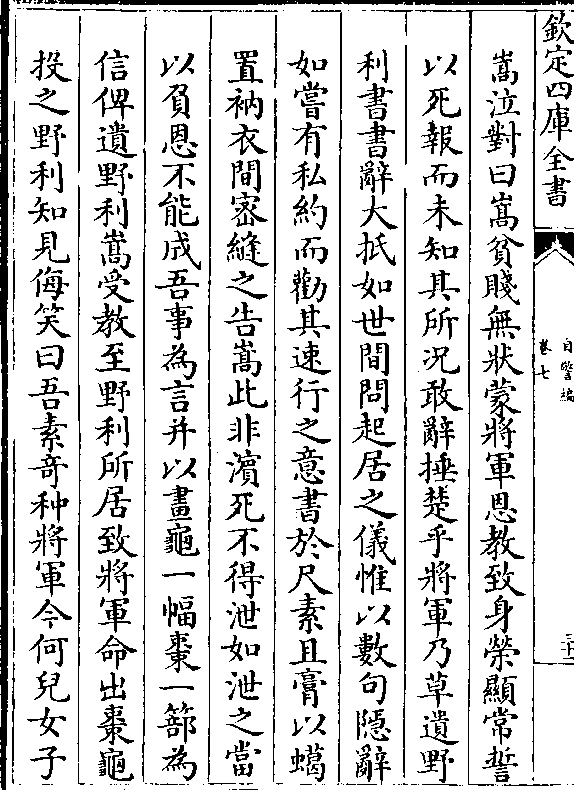 欽定四庫全書
自警編
卷七
三十一
嵩泣對曰嵩貧賤無狀蒙將軍恩教致身榮顯常誓
以死報而未知其所況敢辭捶楚乎將軍乃草遺野
利書書辭大抵如世間問起居之儀惟以數句隠辭
如嘗有私約而勸其速行之意書於尺素且膏以蠟
置衲衣間密縫之告嵩此非濵死不得泄如泄之當
以負恩不能成吾事為言并以畫龜一幅棗一篰為
信俾遺野利嵩受教至野利所居致將軍命出棗龜
投之野利知見侮笑曰吾素竒种將軍今何兒女子